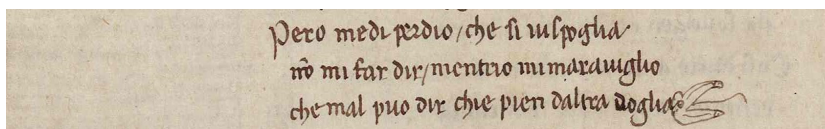 Pero medi perdio/che si uisfoglia
nō mi far dir/mentrio mimarauiglio
che mal puo dir chie pien daltra uoglia